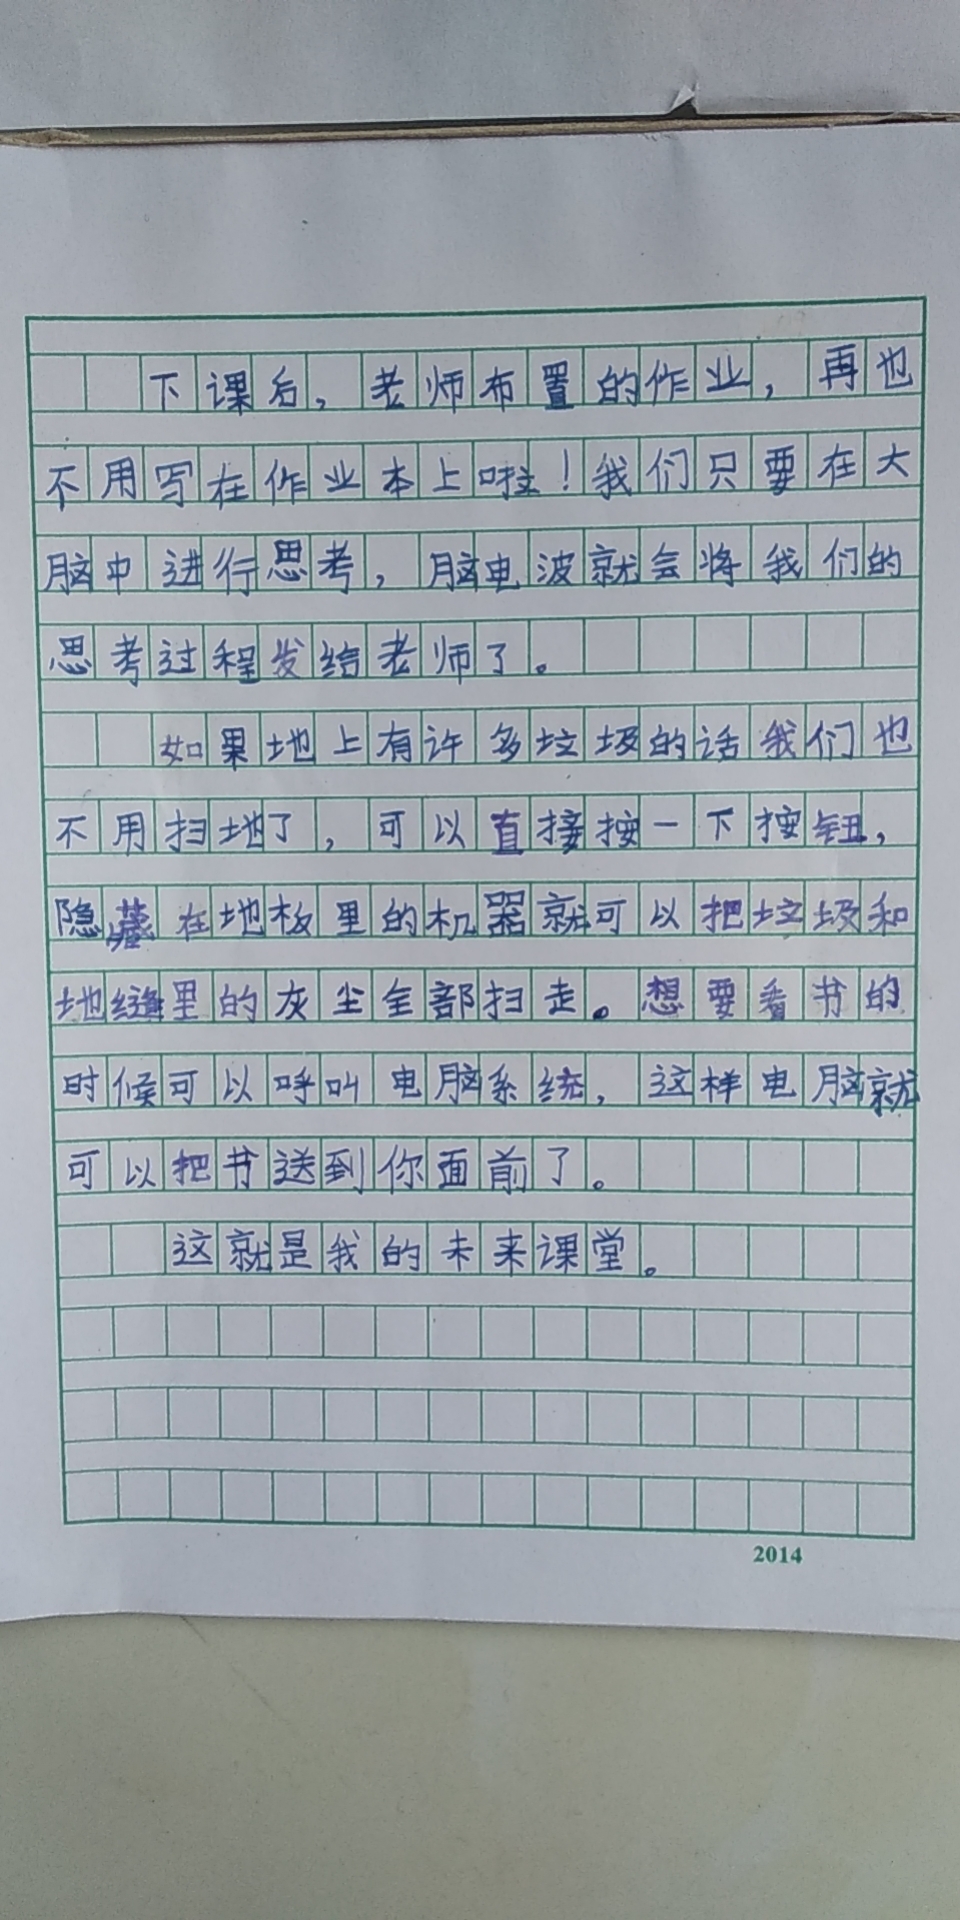 下课后，老师布置的作业，再也
不用写在作业本上啦！我们只要在大
脑中进行思考，脑电波就会将我们的
思考过程发给老师了。
如果地上有许多垃圾的话我们也
不用扫地了，可以直接按一下按钮，
隐藏在地板里的机器就可以把垃圾和
地缝里的灰尘全部扫走。想要看书的
时候可以呼叫电脑系统，这样电脑就
可以把书送到你面前了。
这就是我的未来课堂。
2014